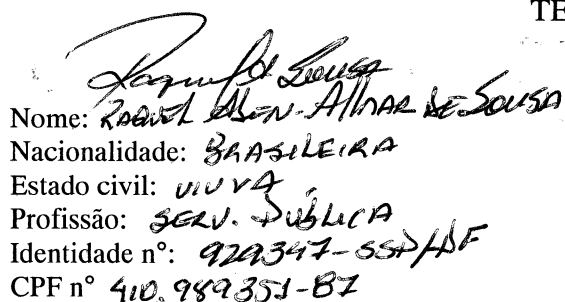 TE
Raquel de Sousa
Nome: RAQUEL DE SOUSA
Nacionalidade: BRASILEIRA
Estado civil: VIUVA
Profissão: SERV. PÚBLICA
Identidade nº: 929347-SSP/DF
CPF nº 410.989351-87